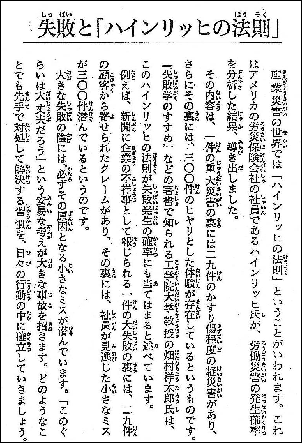 失敗と「ハインリッヒの法則」
産業災害の世界では「ハインリッヒの法則」ということがいわれます。これ
はアメリカの災害保険会社の社員であるハインリッヒ氏が、労働災害の発生確率
を分析した結果、導き出しました。
その内容は、一件の重大災害の裏には二九件のかすり傷程度の軽災害があり、
さらにその裏には、三〇〇件のヒヤリとした体験が存在しているというものです。
「失敗学のすすめ」などの著書で知られる工学院大学教授の畑村洋太郎氏は、
このハインリッヒの法則が失敗発生の確率にも当てはまると述べています。
例えば、新聞に企業の不祥事として報じられる一件の大失敗の裏には、二九件
の顧客から寄せられたクレームがあり、その裏には、社員が見逃した小さなミス
が三〇〇件潜んでいるというのです。
大きな失敗の陰には、必ずその原因となる小さなミスが潜んでいます。「このぐ
らいは大丈夫だろう」という安易な考えが大きな事故を招きます。どのようなこ
とでも先手で対処して解決する習慣を、日々の行動の中に確立していきましょう。